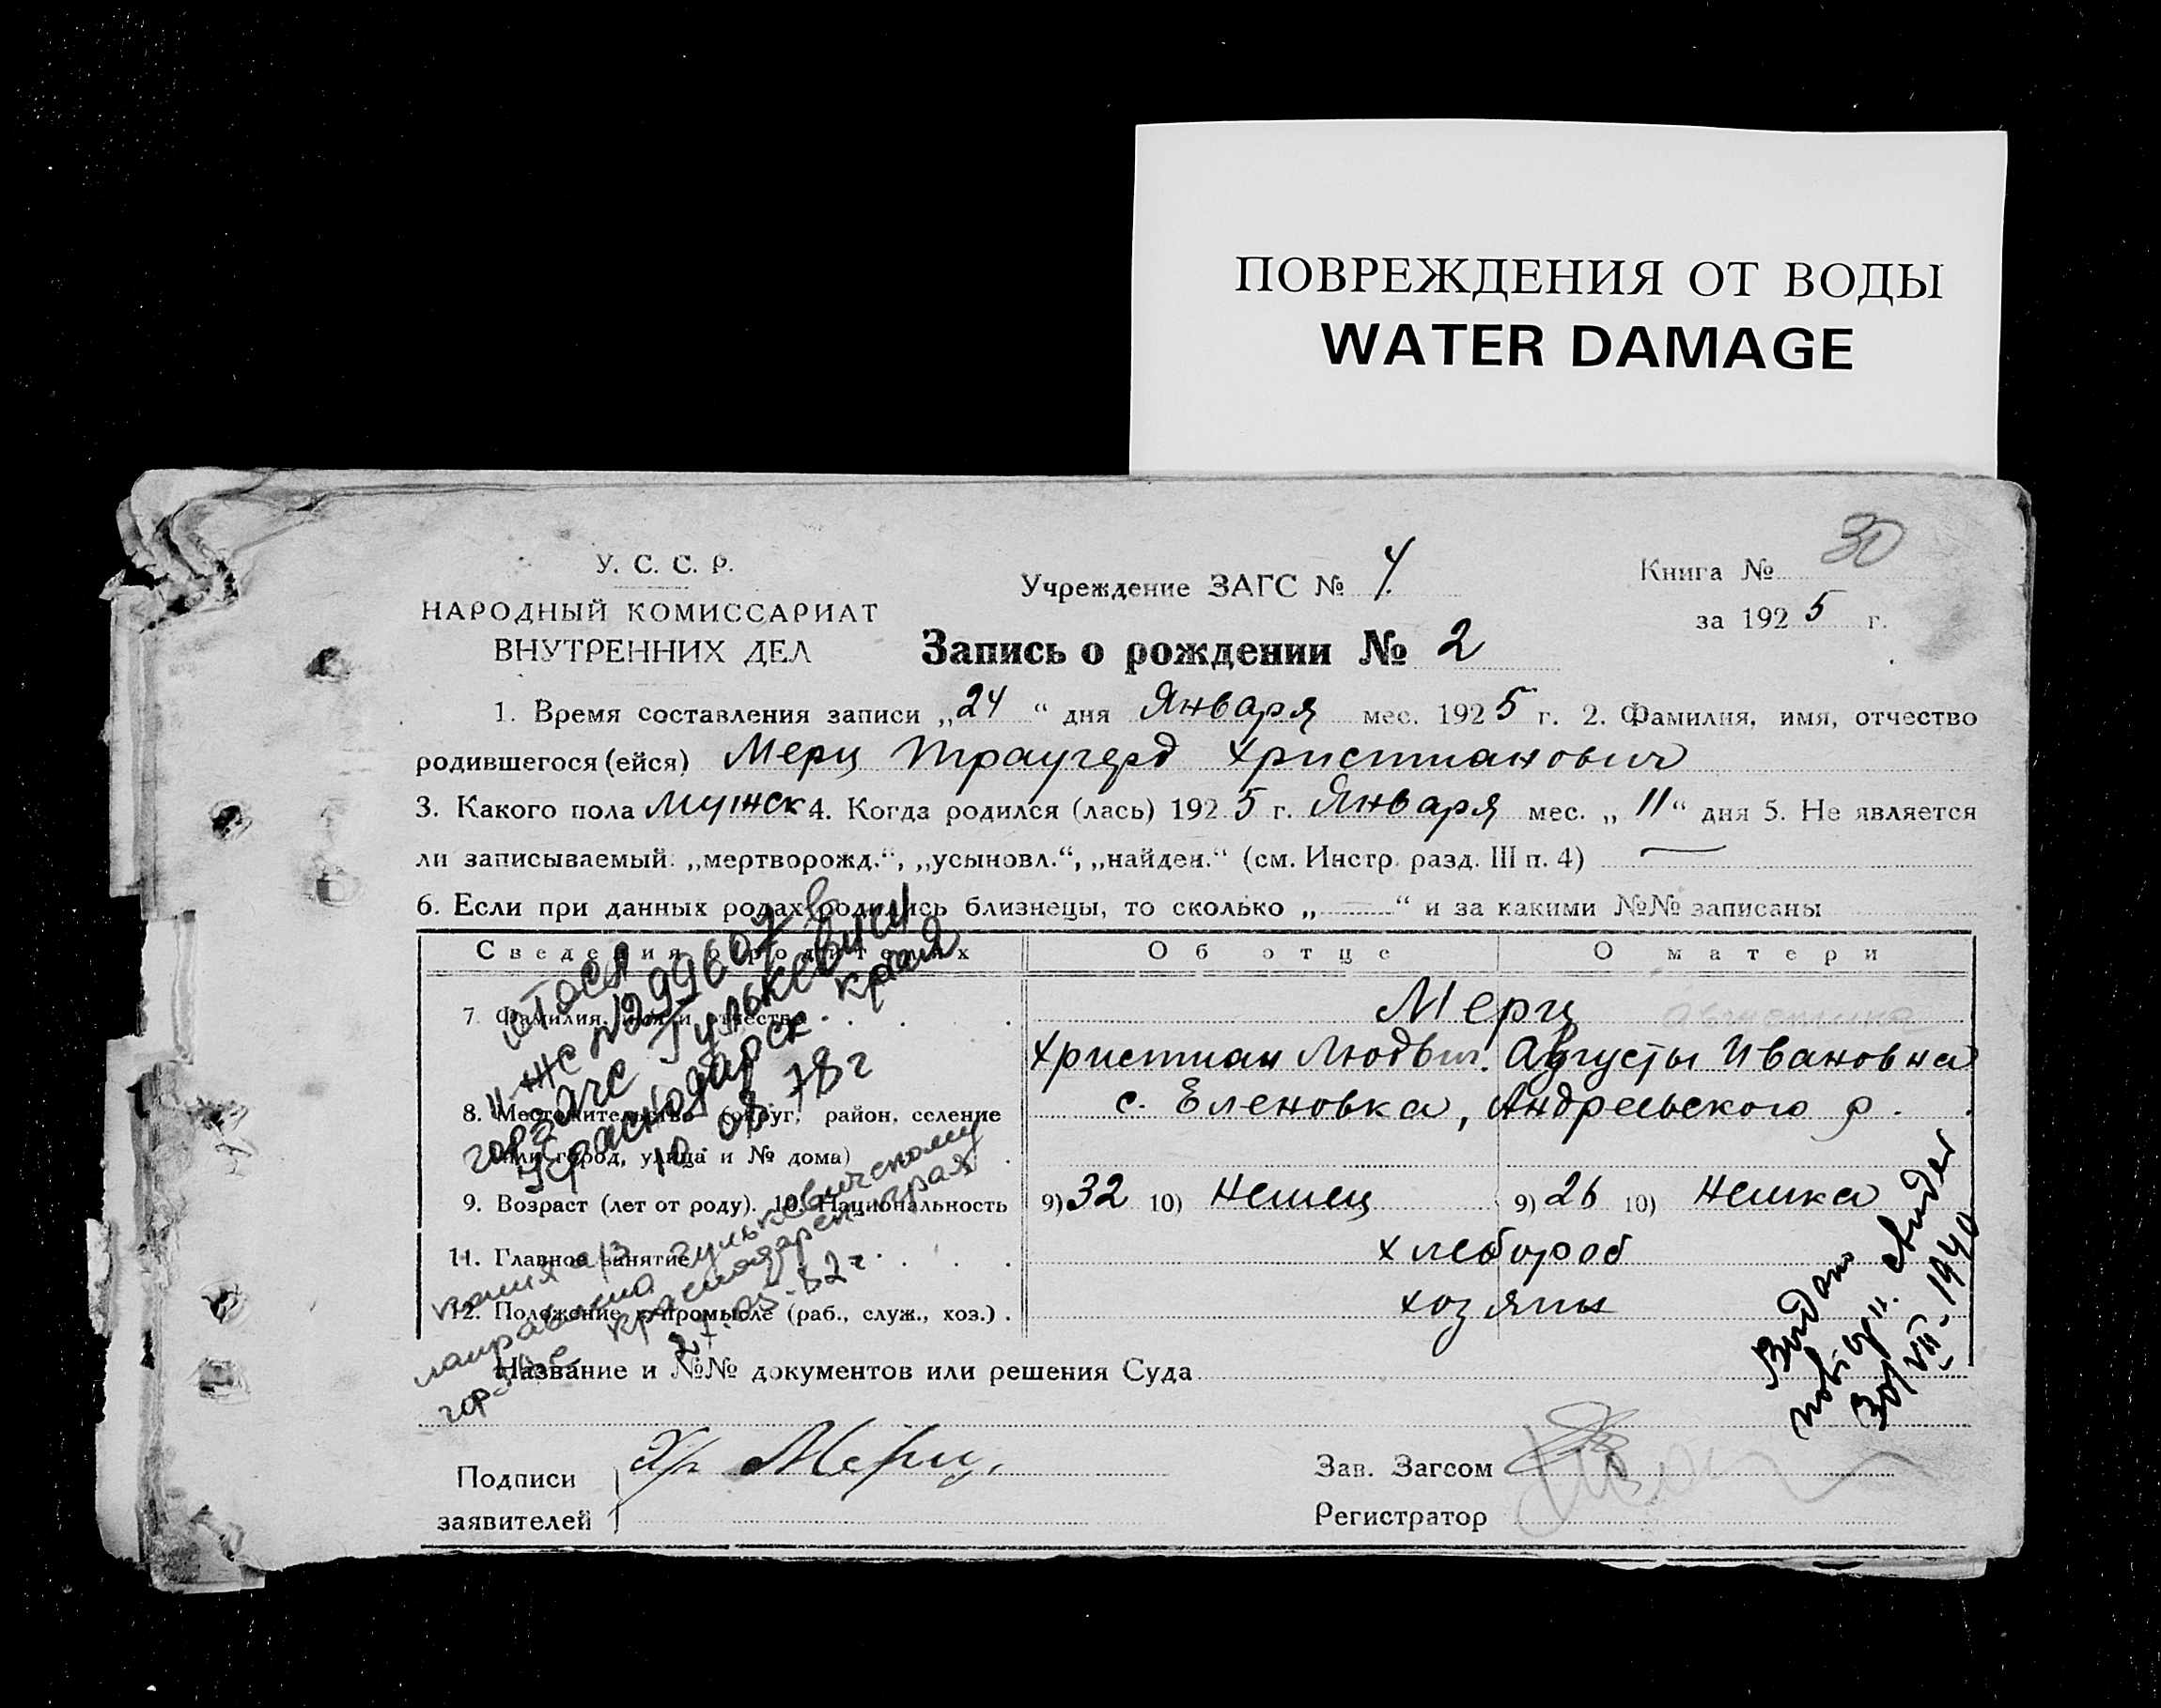 ПОВРЕЖДЕНИЯ ОТ ВОДЫ
WATER DAMAGE
30
У. С. С. Р.
НАРОДНЫЙ КОМИССАРИАТ
ВНУТРЕННИХ ДЕЛ
Учреждение ЗАГС № 4
Книга №
за 1925 г.
Запись о рождении № 2
1. Время составления записи „24“ дня Января мес. 1925 г. 2. Фамилия, имя, отчество
родившегося (ейся) Мерц Траугерд Христианович
3. Какого пола мужск 4. Когда родился (лась) 1925 г. Января мес. „11“ дня 5. Не является
ли записываемый: „мертворожд.“, „усыновл.“, „найден.“ (см. Инстр. разд. III п. 4) —
6. Если при данных родах родились близнецы, то сколько „—“ и за какими №№ записаны
Сведения о родителях Об отце О матери
7. Фамилия, имя и отчество Мерц
Христиан Людвиг. Августы Ивановна
8. Местожительство (округ, район, селение с. Еленовка, Андреевского р.
или город, улица и № дома)
9. Возраст (лет от роду). 10. Национальность 9) 32 10) Немец 9) 26 10) Немка
11. Главное занятие хлебороб
12. Положение в промысле (раб., служ., хоз.) хозяин
Название и №№ документов или решения Суда
Подписи
заявителей
Хр Мерц.
Зав. Загсом
Регистратор
II-ЖС №299607 в
горзагс Гулькевичи
Краснодарск. край
10. 08. 78 г
копия а/з
направлена Гулькевическому
горзагс Краснодарск. края
82 г.
Видано
30/VII-1940